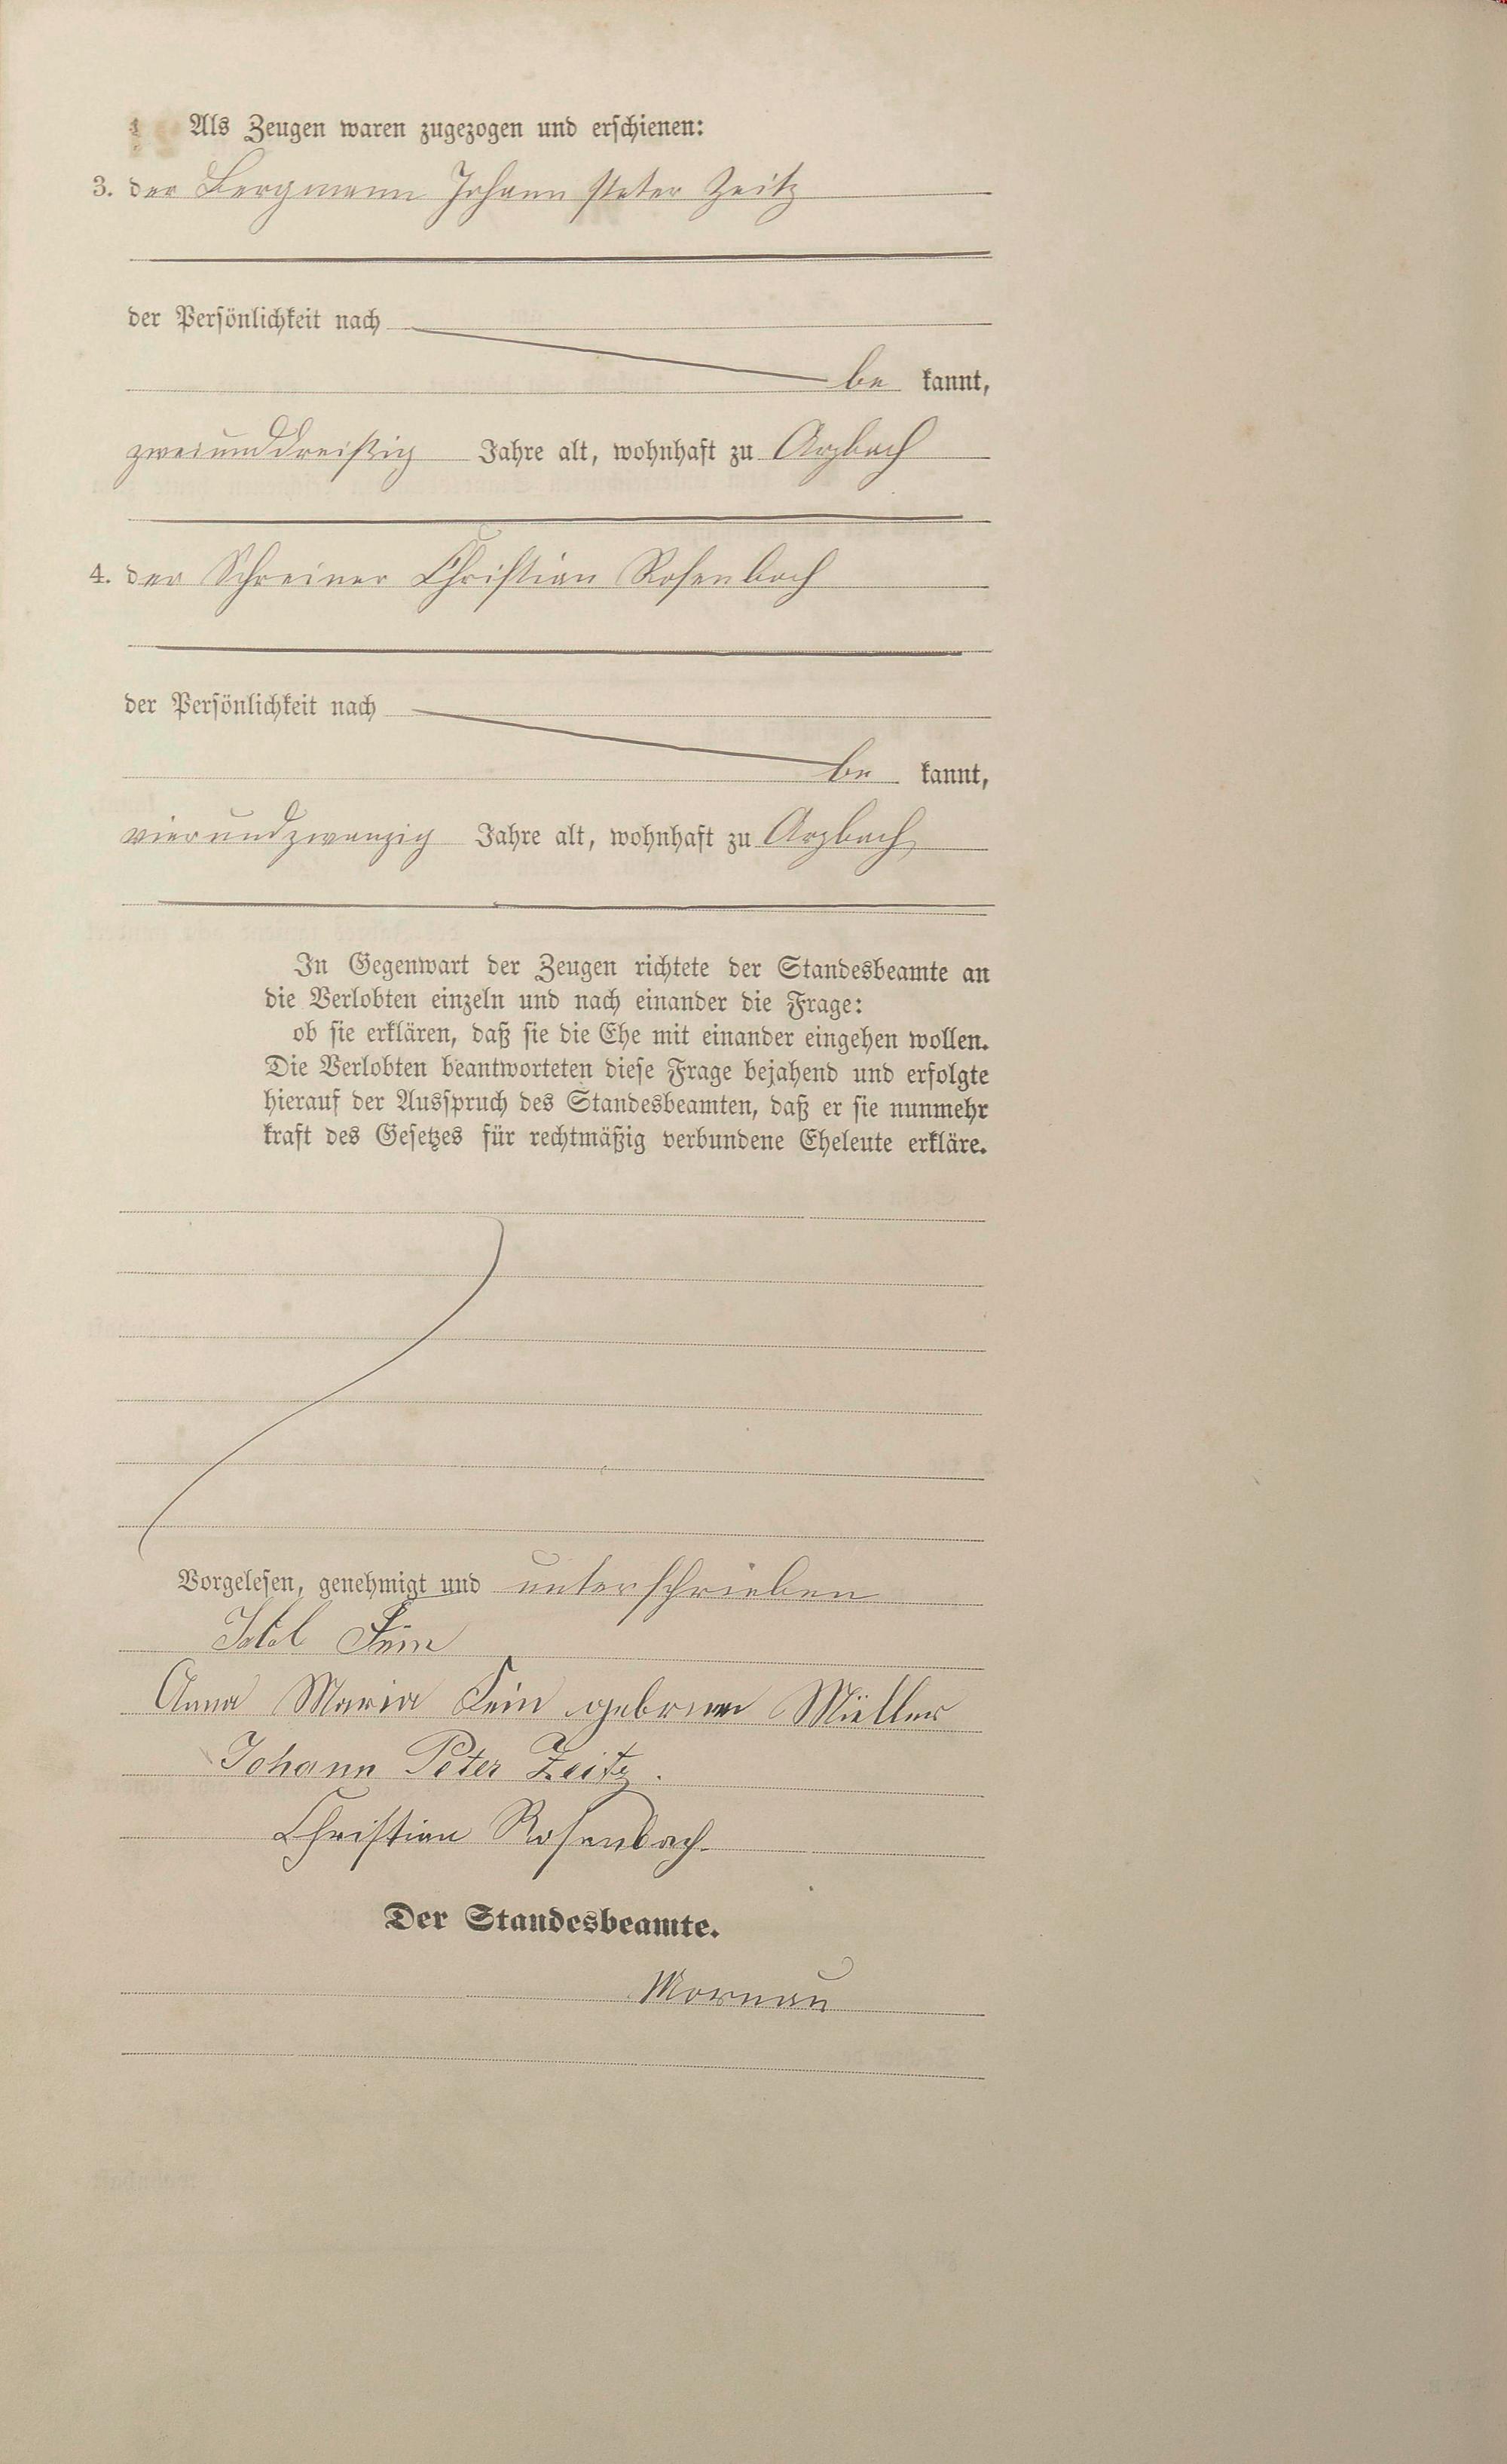 Als Zeugen waren zugezogen und erschienen:
3. der Bergmann Johann Peter Zeitz
der Persönlichkeit nach
be kannt,
zweiunddreißig Jahre alt, wohnhaft zu Arzbach
4. der Schreiner Christian Rosenbach
der Persönlichkeit nach
be kannt,
vierundzwanzig Jahre alt, wohnhaft zu Arzbach
In Gegenwart der Zeugen richtete der Standesbeamte an
die Verlobten einzeln und nach einander die Frage:
ob sie erklären, daß sie die Ehe mit einander eingehen wollen.
Die Verlobten beantworteten diese Frage bejahend und erfolgte
hierauf der Ausspruch des Standesbeamten, daß er sie nunmehr
kraft des Gesetzes für rechtmäßig verbundene Eheleute erkläre.
Vorgelesen, genehmigt und unterschrieben
Anna Maria Fein geborene Müller
Johann Peter Zeitz.
Christian Rosenbach.
Der Standesbeamte.
Mornau